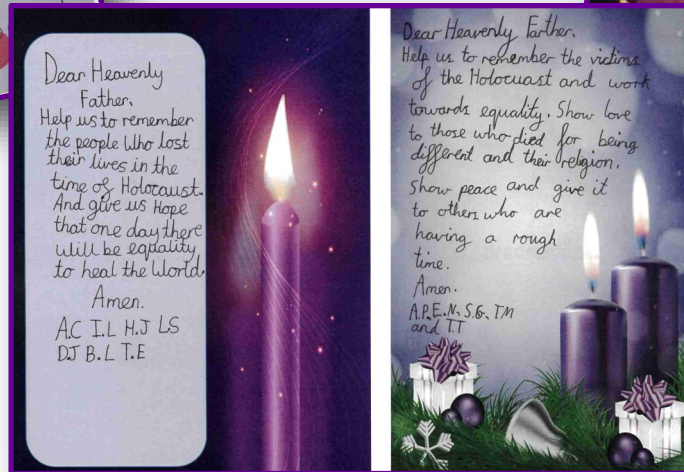 Dear Heavenly
Father,
Help us to remember
the people who lost
their lives in the
time of Holocaust.
And give us Hope
that one day there
will be eqality
to heal the World.
Amen.
A.C I.L H.J LS
D.J B.L T.E
Dear Heavenly Farther,
Help us to remember the victims
of the Holocuast and work
towards equality. Show love
to those who died for being
different and their religion.
Show peace and give it
to others who are
having a rough
time.
Amen.
A.P, E.N, S.G, TM
and T.T